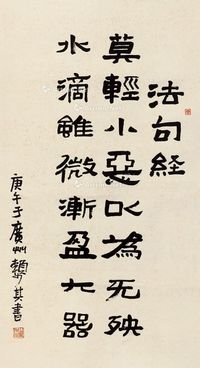 法句経
莫輕小惡以為无殃
水滴雖微漸盈大器
庚午于廣州
書